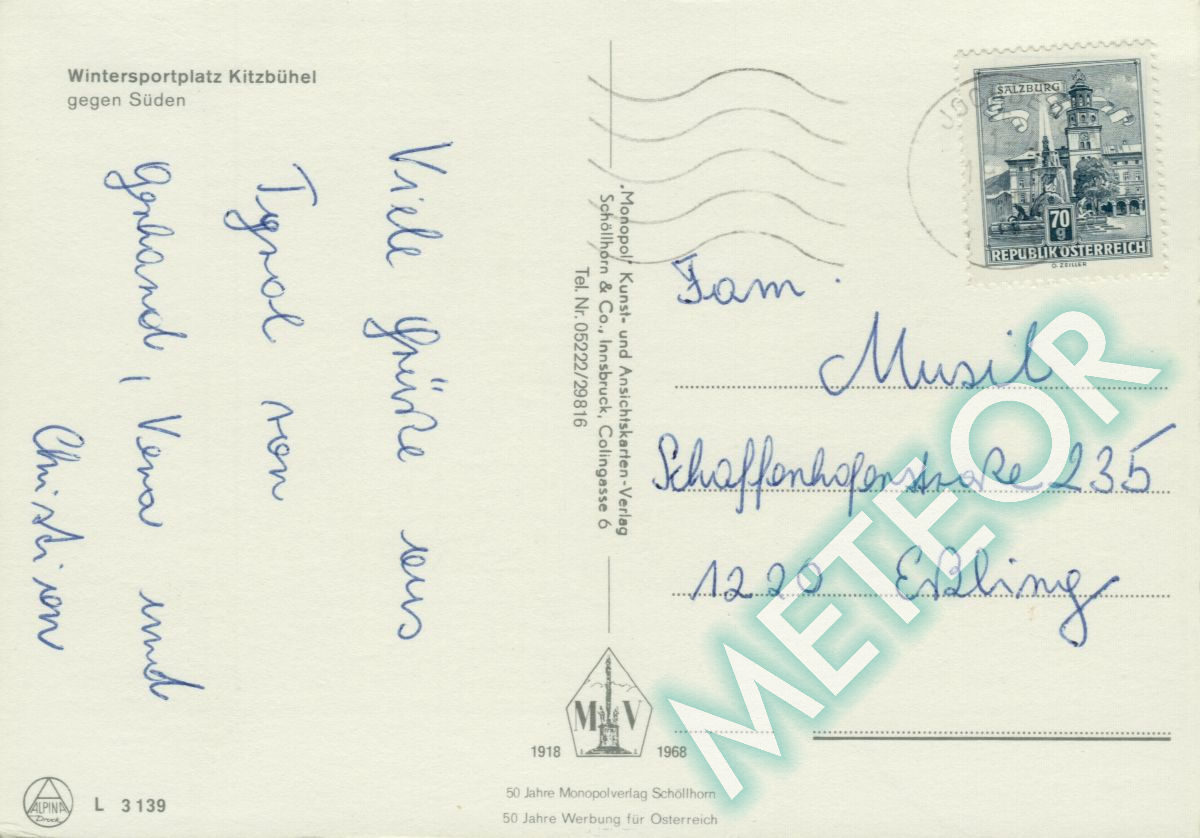 Wintersportplatz Kitzbühel
gegen Süden
Viele Grüße aus
Tyrol von
Gerhard, Vera und
Christian
„Monopol" Kunst- und Ansichtskarten-Verlag
Schöllhorn & Co., Innsbruck, Colingasse 6
Tel. Nr. 05222/29816
SALZBURG
70
g
REPUBLIK ÖSTERREICH
O. ZEILLER
Fam.
Musil
Schaffenhoferstraße 235
1220 Eßling
METEOR
M V
1918 1968
50 Jahre Monopolverlag Schöllhorn
50 Jahre Werbung für Österreich
ALPINA
Druck
L 3139